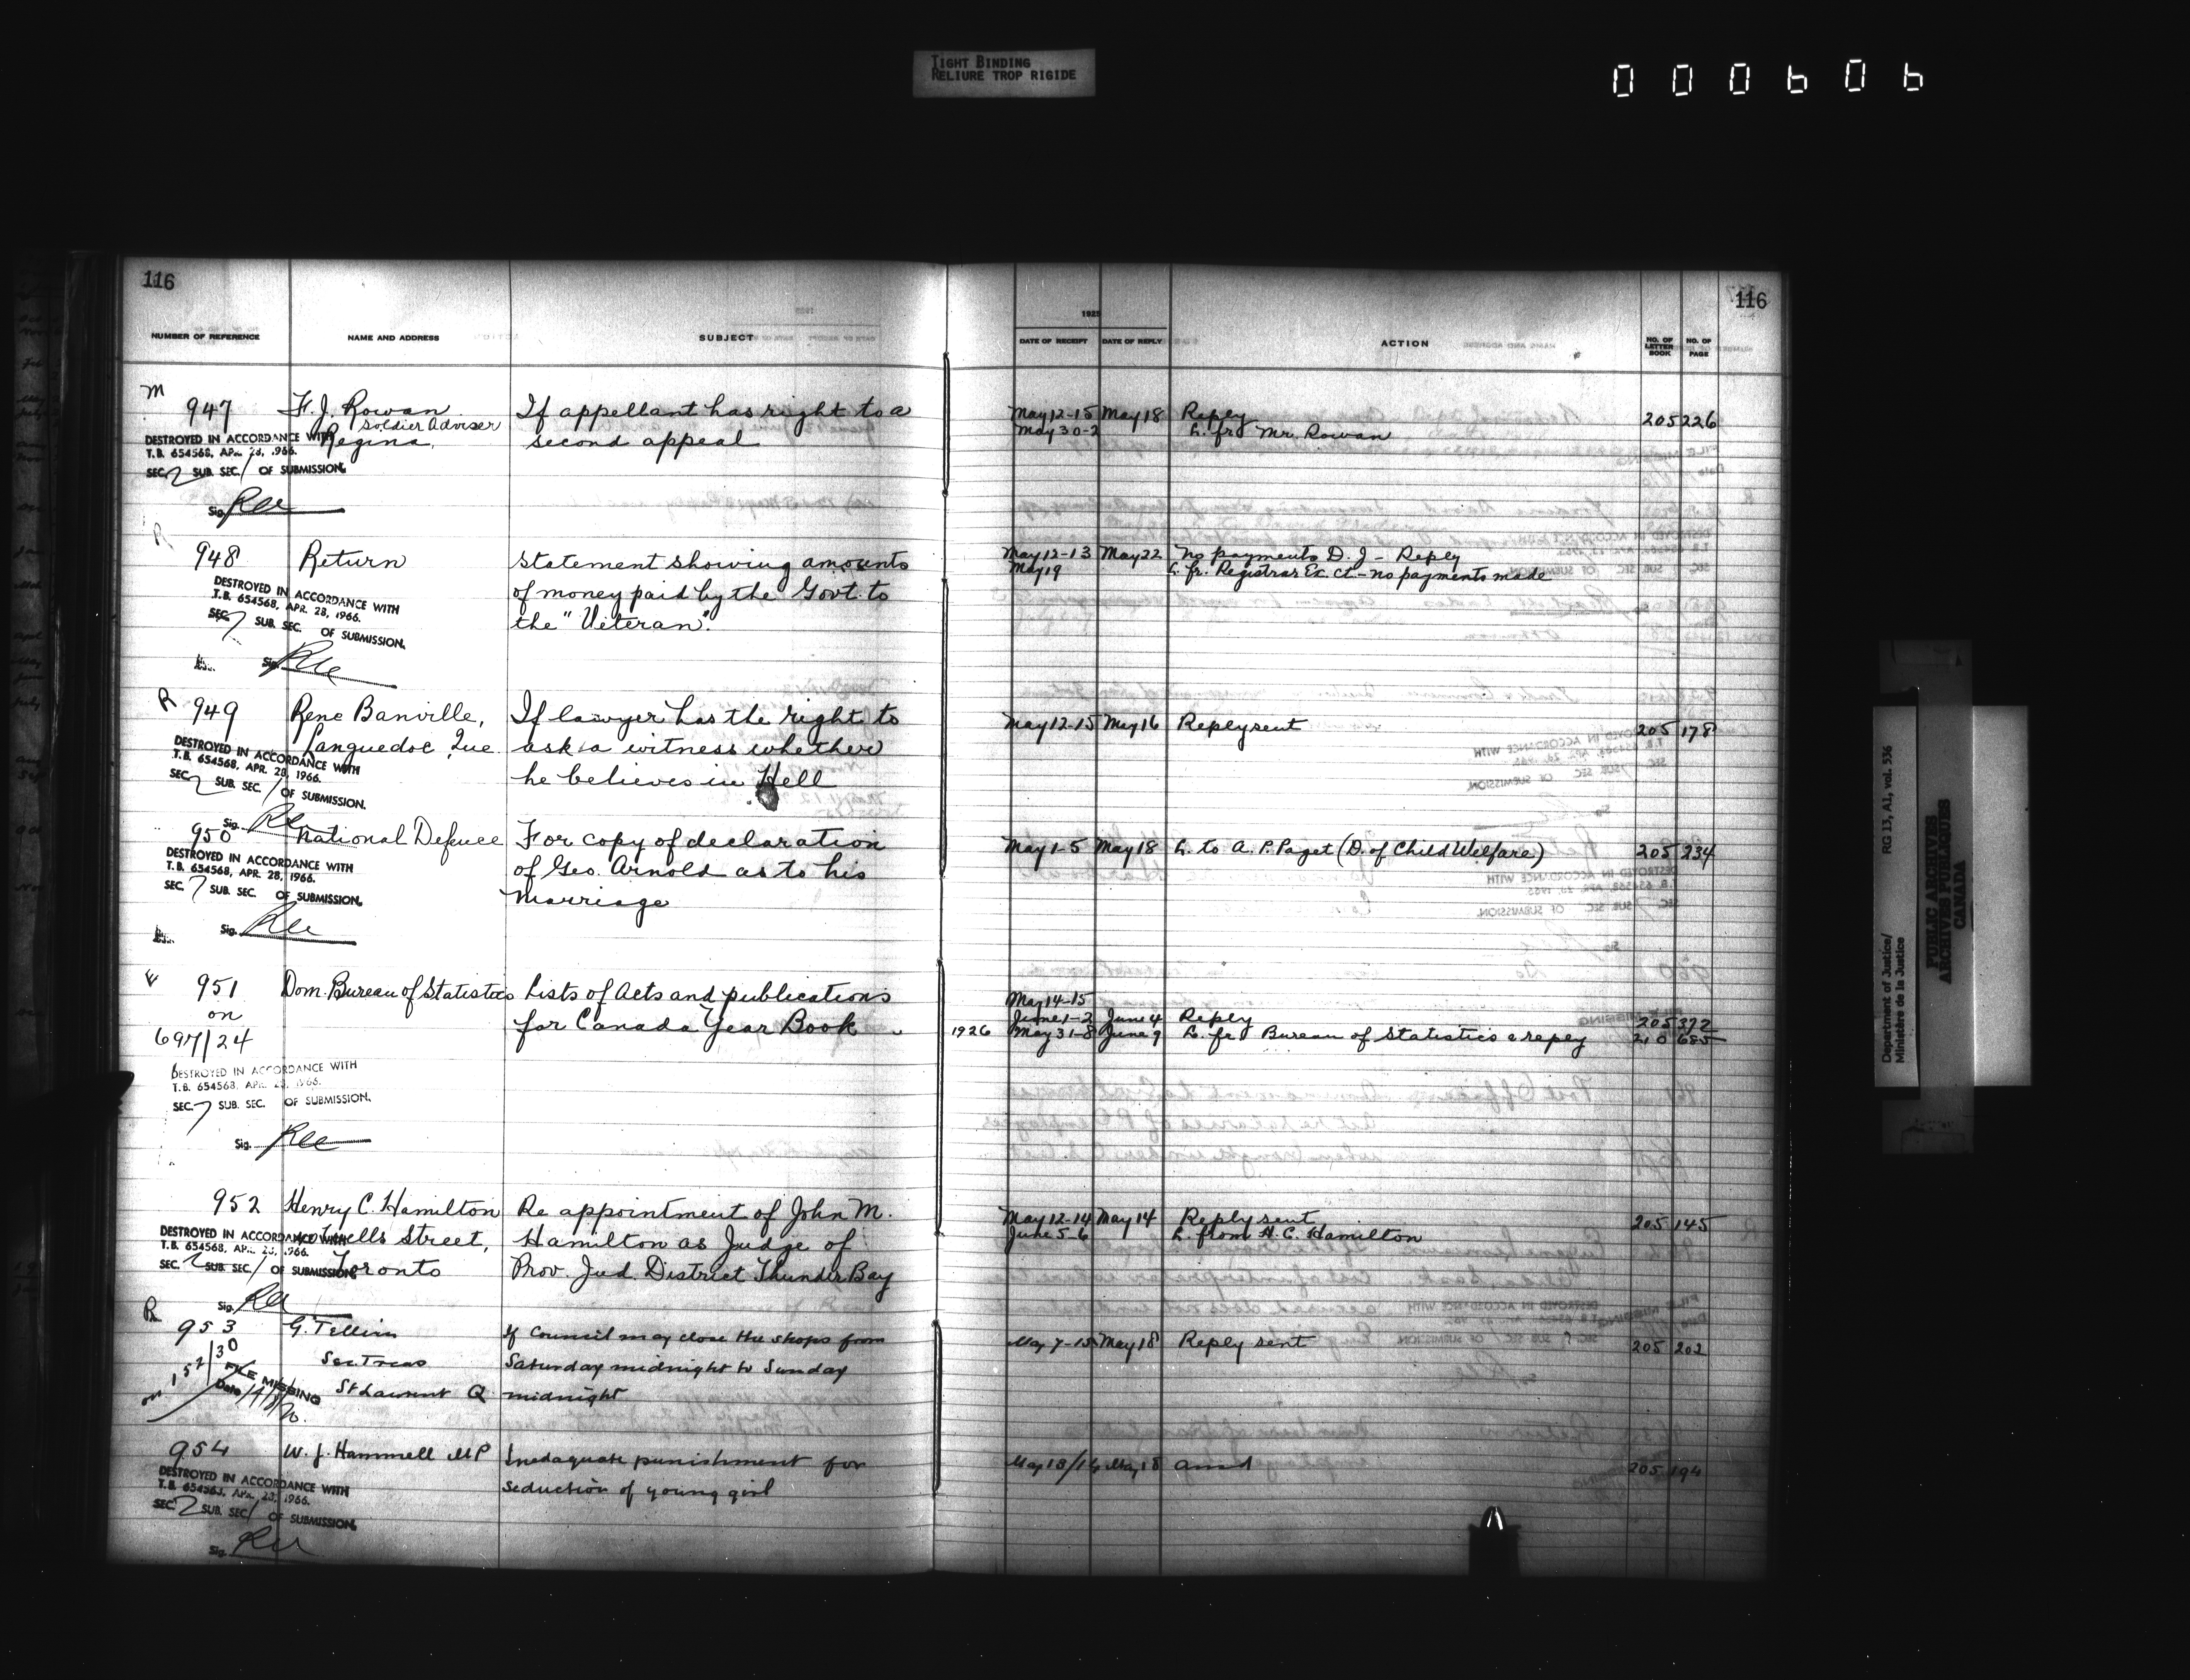 TIGHT BINDING
RELIURE TROP RIGIDE
000606
116
116
1925
NUMBER OF REFERENCE NAME AND ADDRESS SUBJECT DATE OF RECEIPT DATE OF REPLY ACTION NO. OF LETTER BOOK NO. OF PAGE
M
947 F. J. Rowan If appellant has right to a May 12-15 May 18 Reply 205 226
Soldier Adviser
Regina, second appeal May 30-2 L. fr. Mr. Rowan
DESTROYED IN ACCORDANCE WITH
T.B. 654568, APR. 28, 1966.
SEC. 2 SUB. SEC. 1 OF SUBMISSION.
Sig.
R
948 Return Statement showing amounts May 12-13 May 22 No payments D. J - Reply
of money paid by the Govt. to May 19 L. fr. Registrar Ex. Ct - no payments made
the "Veteran".
DESTROYED IN ACCORDANCE WITH
T.B. 654568, APR. 28, 1966.
SEC. 7 SUB. SEC. OF SUBMISSION.
Sig.
R
949 Rene Banville, If lawyer has the right to May 12-15 May 16 Reply sent 205 178
Languedoc Que ask a witness whether
he believes in Hell
DESTROYED IN ACCORDANCE WITH
T.B. 654568, APR. 28, 1966.
SEC. 2 SUB. SEC. 1 OF SUBMISSION.
Sig.
950 National Defence For copy of declaration May 1-5 May 18 L. to A. P. Paget (D. of Child Welfare) 205 234
of Geo. Arnold as to his
Marriage
DESTROYED IN ACCORDANCE WITH
T.B. 654568, APR. 28, 1966.
SEC. 7 SUB. SEC. OF SUBMISSION.
Sig.
951 Dom. Bureau of Statistics Lists of Acts and publications May 14-15
on for Canada Year Book June 1-2 June 4 Reply 205 372
697/24 1926 May 31-8 June 9 L. fr. Bureau of Statistics & reply 210 685
DESTROYED IN ACCORDANCE WITH
T.B. 654568, APR. 28, 1966.
SEC. 7 SUB. SEC. OF SUBMISSION.
Sig.
952 Henry C. Hamilton Re appointment of John M. May 12-14 May 14 Reply sent 205 145
Wells Street, Hamilton as Judge of June 5-6 L. from H. C. Hamilton
Toronto Prov. Jud. District Thunder Bay
DESTROYED IN ACCORDANCE WITH
T.B. 654568, APR. 28, 1966.
SEC. 2 SUB. SEC. 1 OF SUBMISSION.
Sig.
R
953 G. Tellier If Council may close the shops from May 7-15 May 18 Reply sent 205 202
on 152/30 Sec Treas Saturday midnight to Sunday
St Laurent Q midnight
FILE MISSING
Date
954 W. J. Hammell MP Inadaquate punishment for May 13/14 May 18 ansd 205 194
Seduction of young girl
DESTROYED IN ACCORDANCE WITH
T.B. 654568, APR. 28, 1966.
SEC. 2 SUB. SEC. 1 OF SUBMISSION.
Sig.
Department of Justice/
Ministère de la Justice
RG 13, A1, vol. 536
PUBLIC ARCHIVES
ARCHIVES PUBLIQUES
CANADA